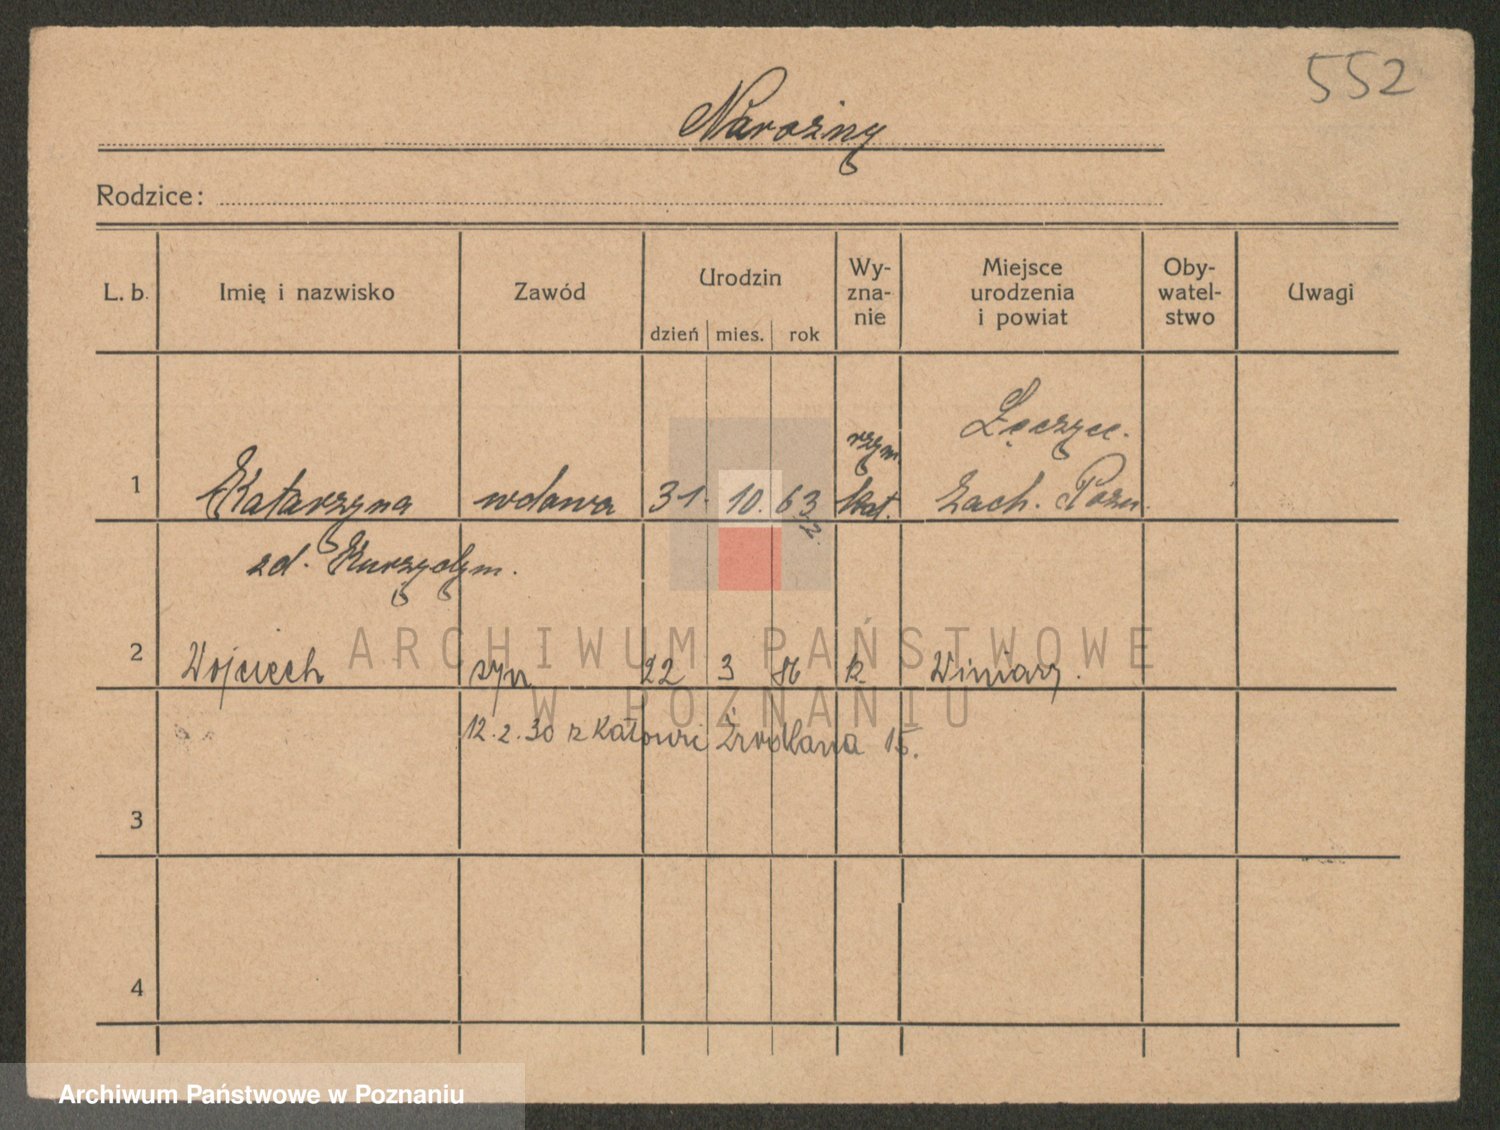 552
Narożny
Rodzice:
L. b. Imię i nazwisko Zawód Urodzin dzień mies. rok Wy-zna-nie Miejsce urodzenia i powiat Oby-watel-stwo Uwagi
rzym. Łęczyc.
1 Katarzyna wdowa 31. 10. 63 kat. zach. Pozn.
zd.
2 Wojciech syn 22 3 k Winiary.
12.2.30 z Katowic Źródlana 15.
3
4
ARCHIWUM PAŃSTWOWE
W POZNANIU
Archiwum Państwowe w Poznaniu